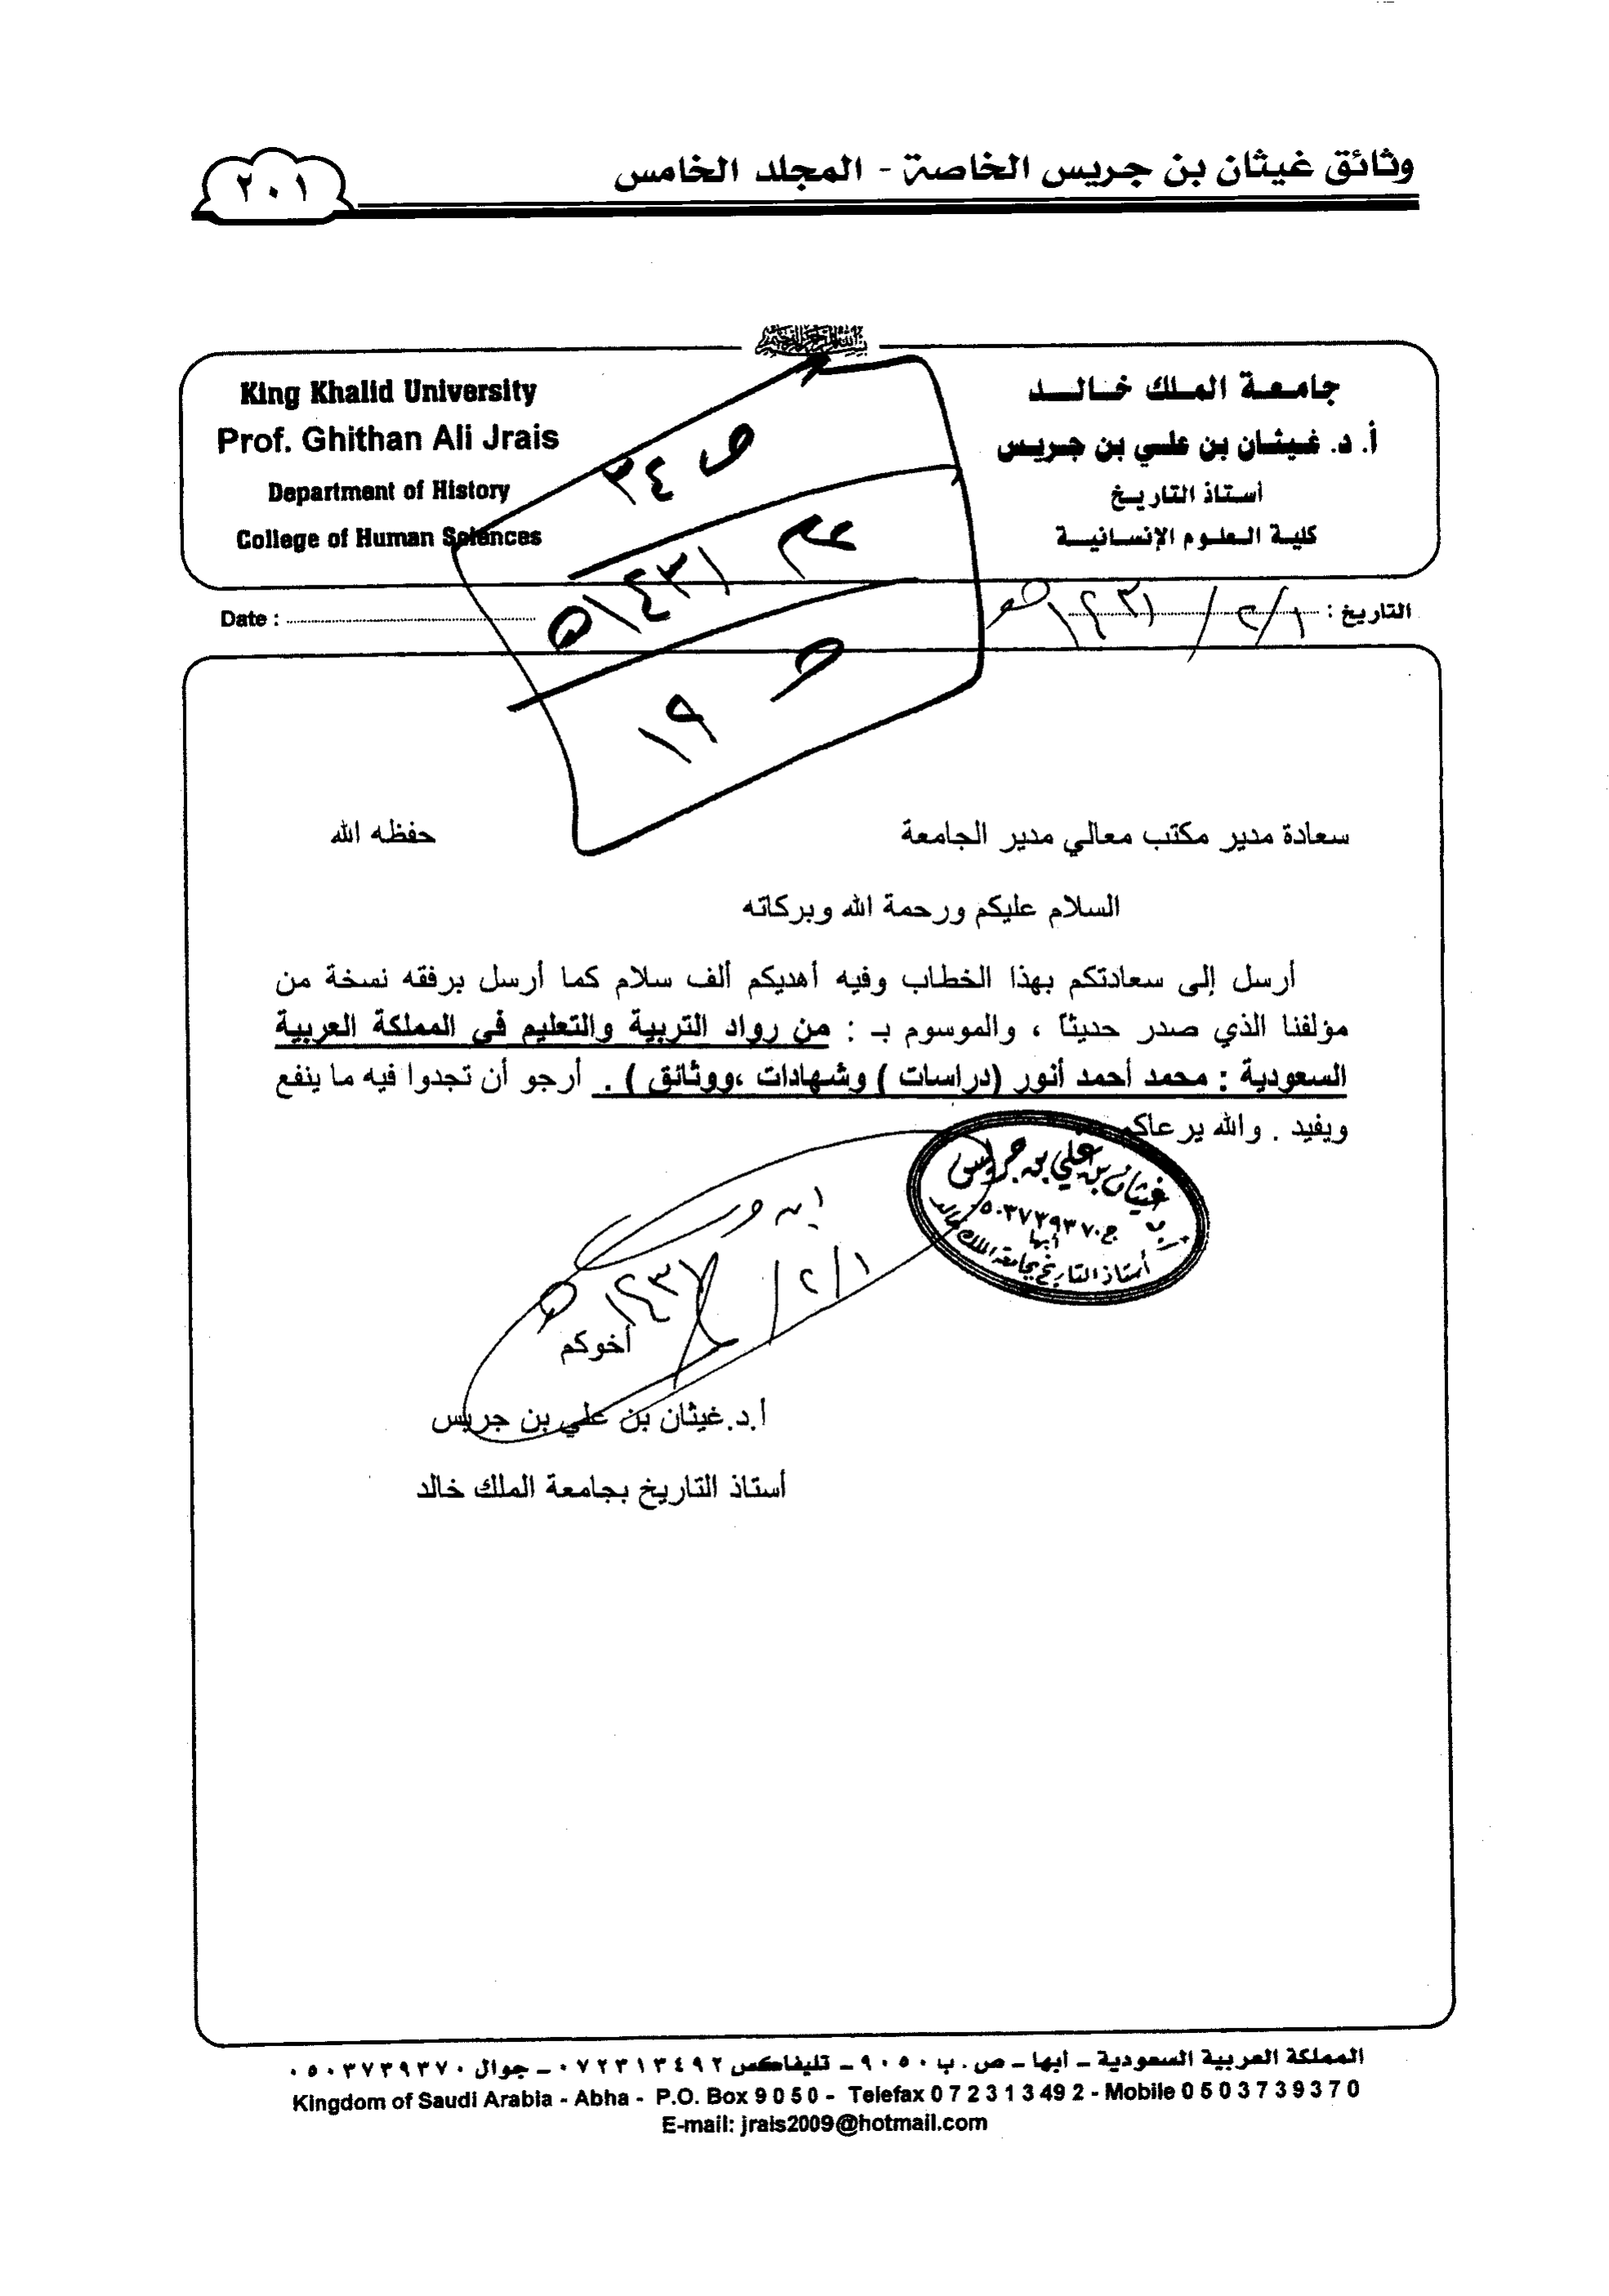 وثائق غيثان بن جريس الخاصة - المجلد الخامس
٢٠١
جامعة الملك خالد
أ. د. غيثان بن علي بن جريس
أستاذ التاريخ
كلية العلوم الإنسانية
King Khalid University
Prof. Ghithan Ali Jrais
Department of History
College of Human Sciences
ص ٣٤
عام ١٤٣١هـ
ص ١٩
التاريخ : ١/٢/١٤٣١هـ
Date :
سعادة مدير مكتب معالي مدير الجامعة حفظه الله
السلام عليكم ورحمة الله وبركاته
أرسل إلى سعادتكم بهذا الخطاب وفيه أهديكم ألف سلام كما أرسل برفقه نسخة من
مؤلفنا الذي صدر حديثاً ، والموسوم بـ : من رواد التربية والتعليم في المملكة العربية
السعودية : محمد أحمد أنور (دراسات ) وشهادات ،ووثائق ) . أرجو أن تجدوا فيه ما ينفع
ويفيد . والله يرعاكم
غيثان بن علي بن جريس
ج ٠٥٠٣٧٣٩٣٧٠
أبها
أستاذ التاريخ بجامعة الملك خالد
ابن جريس
١/٢/١٤٣١هـ
أخوكم
أ.د.غيثان بن علي بن جريس
أستاذ التاريخ بجامعة الملك خالد
المملكة العربية السعودية – أبها – ص . ب ٩٠٥٠ – تليفاكس ٠٧٢٣١٣٤٩٢ – جوال ٠٥٠٣٧٣٩٣٧٠
Kingdom of Saudi Arabia - Abha - P.O. Box 9050 - Telefax 072313492 - Mobile 0503739370
E-mail: jrais2009@hotmail.com